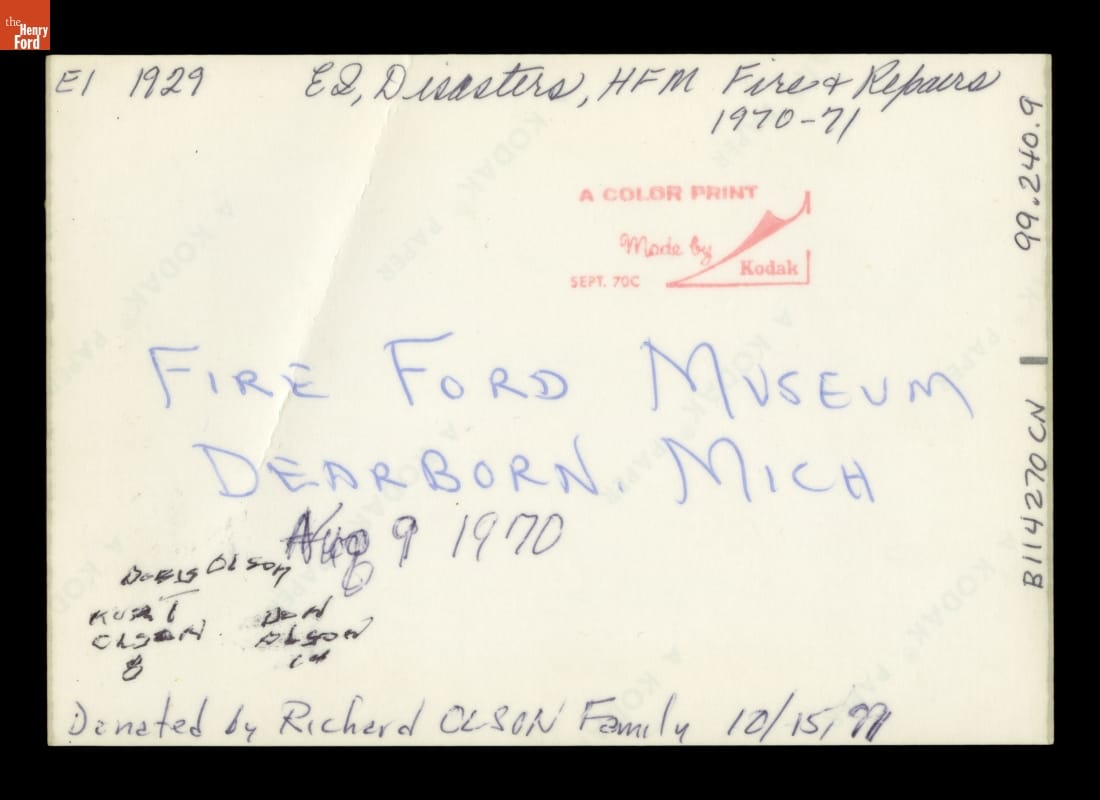 the
Henry
Ford
EI 1929 EI, Disasters, HFM Fire & Repairs
1970-71
99.240.9
A COLOR PRINT
Made by
Kodak
SEPT. 70C
FIRE FORD MUSEUM
DEARBORN. MICH
Aug 9 1970
DORIS OLSON
KURT DON
OLSON OLSON
8 14
B114270CN
Donated by Richard OLSON Family 10/15/99
A KODAK PAPER